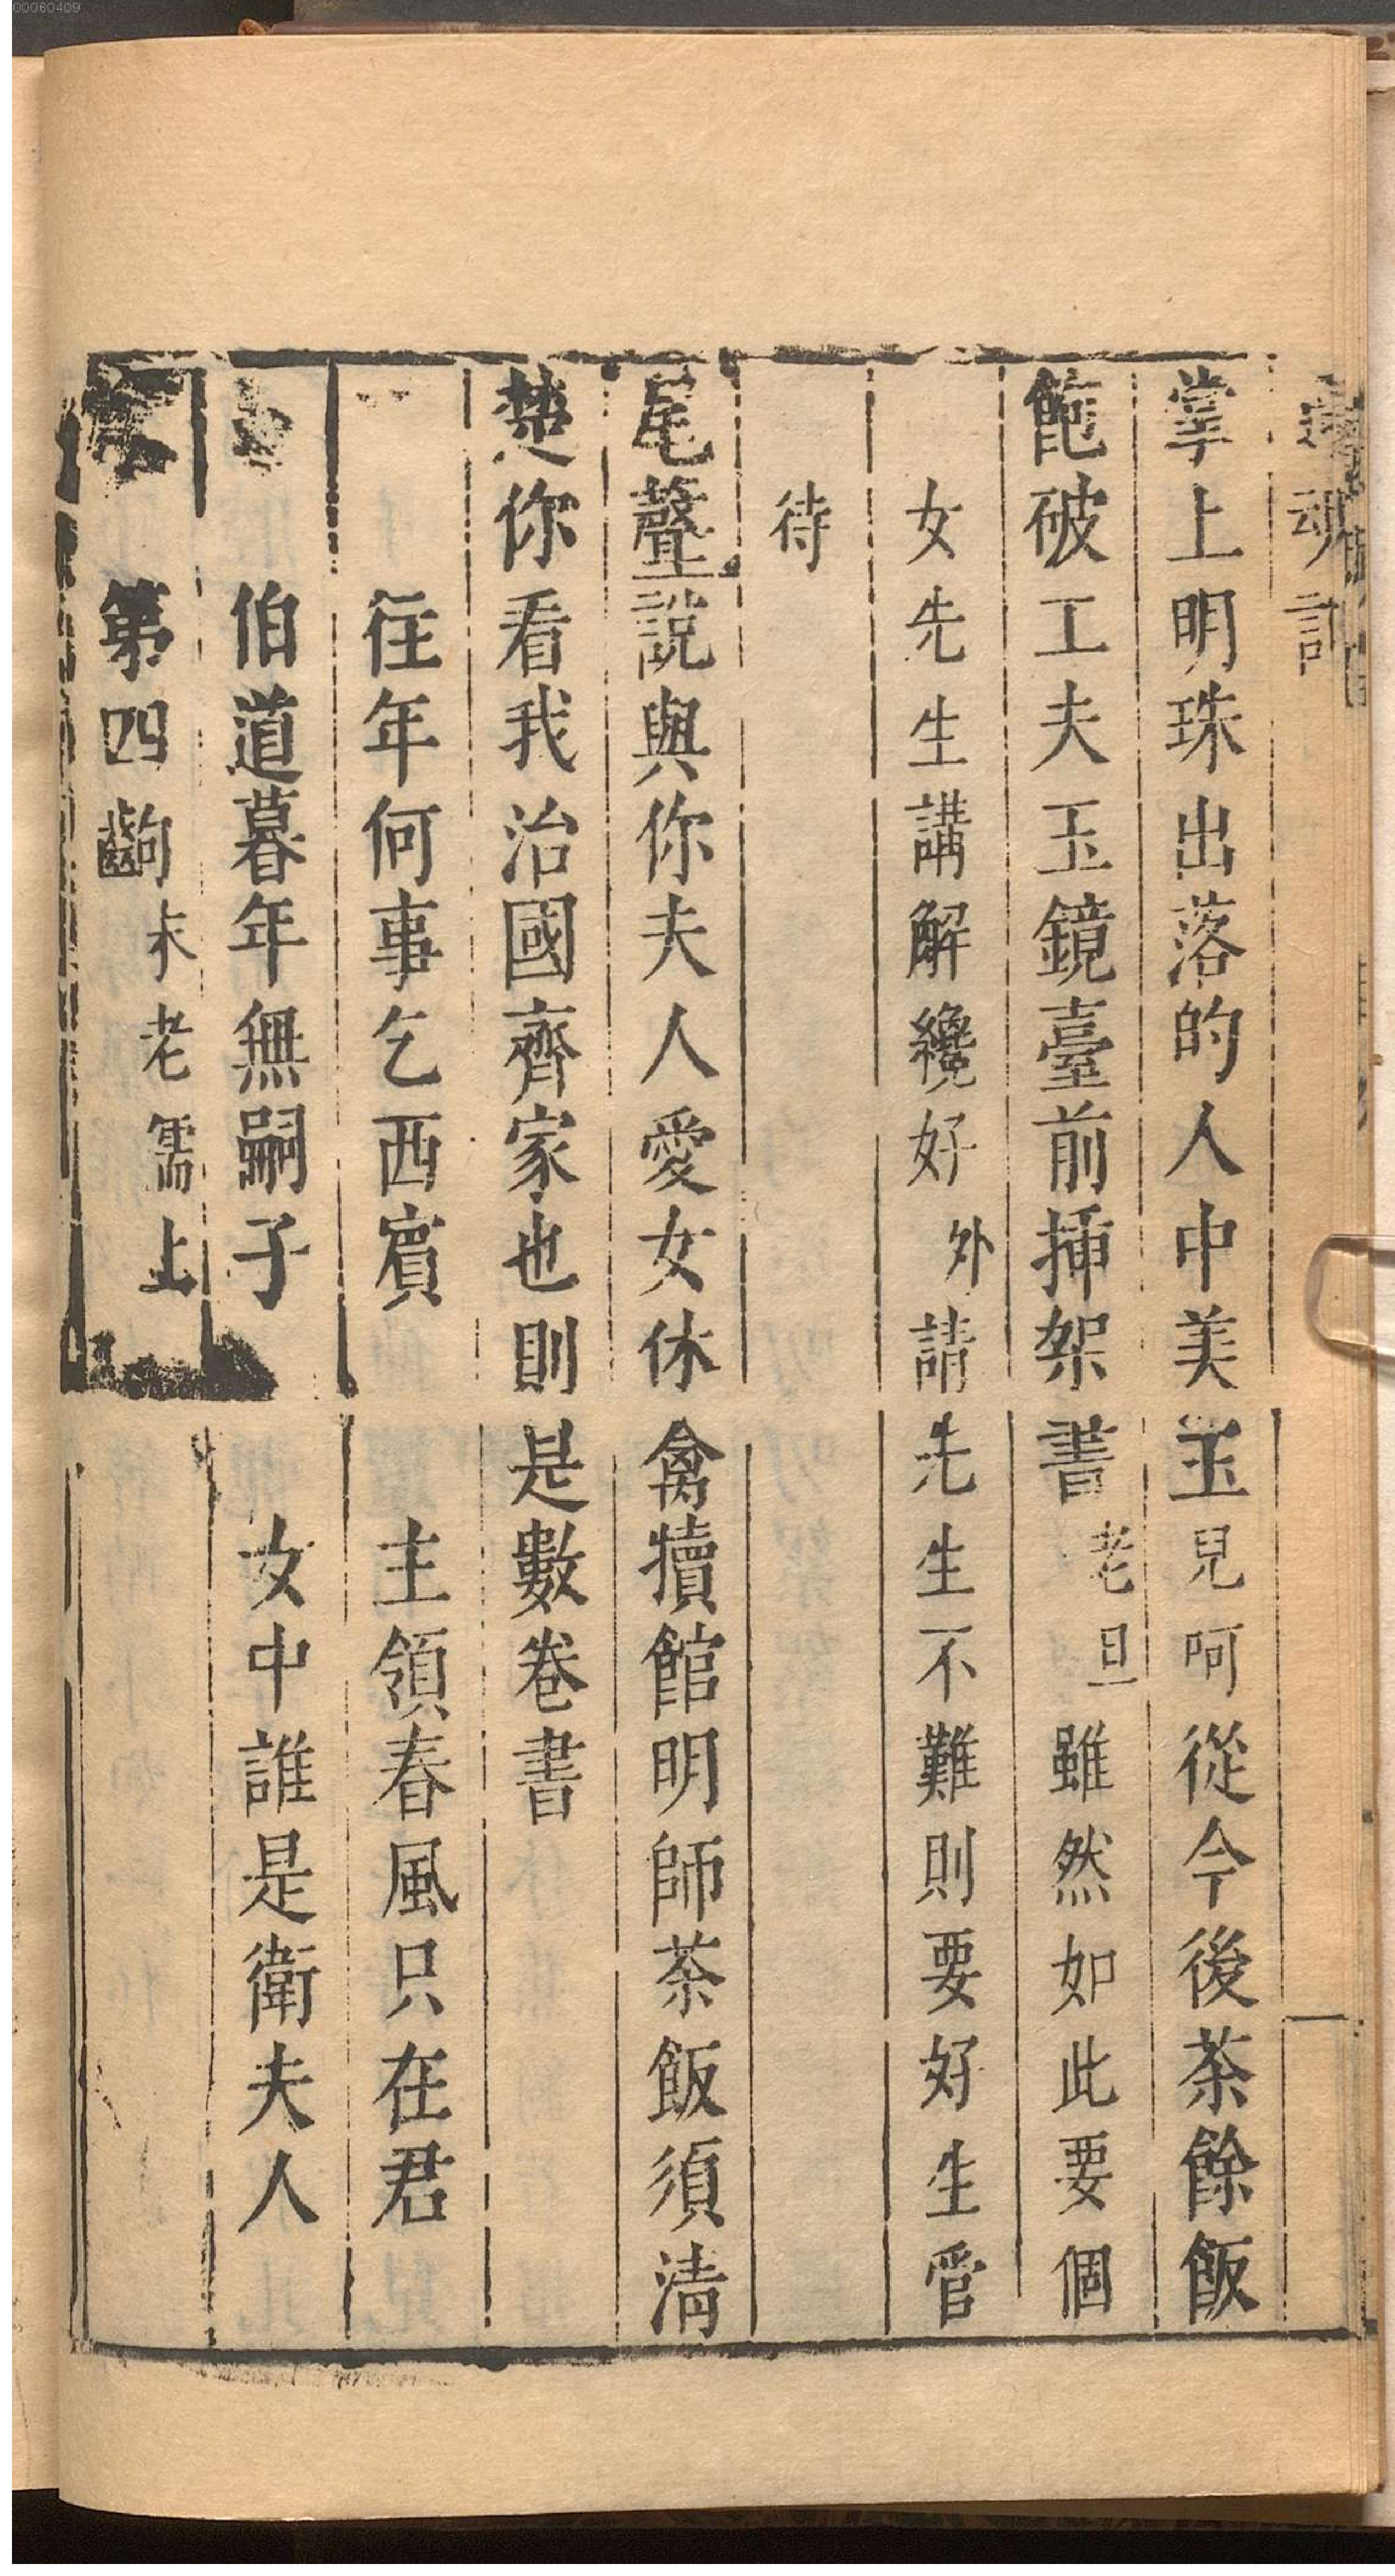 00060409
還魂記
掌上明珠出落的人中美玉兒呵從今後茶餘飯
飽破工夫玉鏡臺前揷架書老旦雖然如此要個
女先生講解纔好外請先生不難則要好生管
待
尾聲說與你夫人愛女休禽犢館明師茶飯須清
楚你看我治國齊家也則是數卷書
往年何事乞西賓主領春風只在君
伯道暮年無嗣子女中誰是衛夫人
第四齣末老儒上